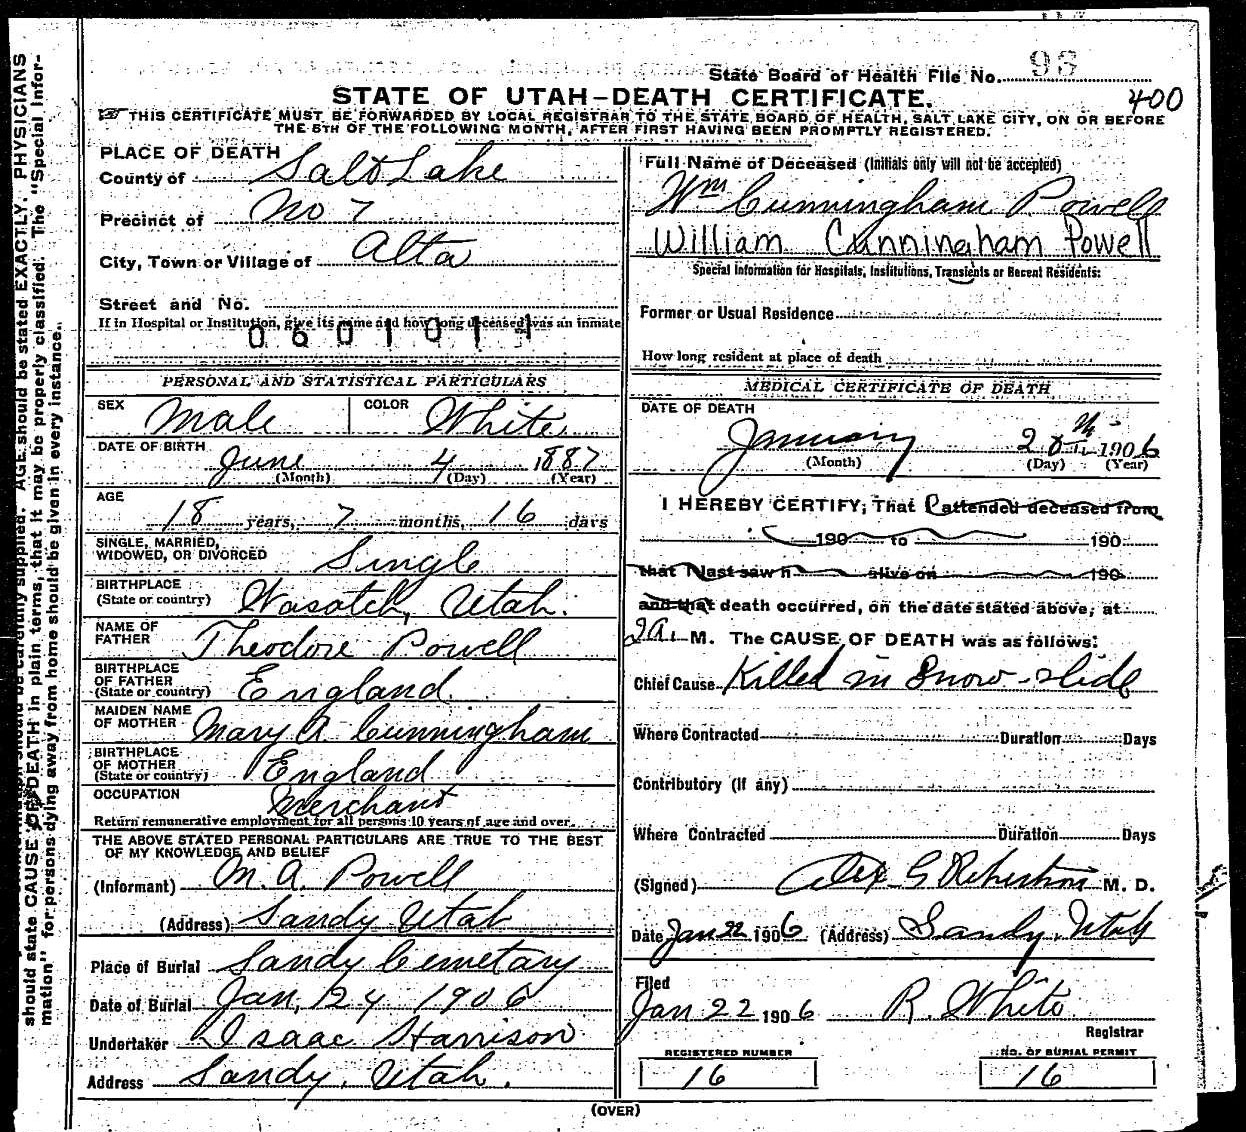 State Board of Health File No. 93
400
STATE OF UTAH—DEATH CERTIFICATE.
THIS CERTIFICATE MUST BE FORWARDED BY LOCAL REGISTRAR TO THE STATE BOARD OF HEALTH, SALT LAKE CITY, ON OR BEFORE
THE 5TH OF THE FOLLOWING MONTH, AFTER FIRST HAVING BEEN PROMPTLY REGISTERED.
PLACE OF DEATH
County of Salt Lake
Precinct of No 7
City, Town or Village of Alta
Street and No.
If in Hospital or Institution, give its name and how long deceased was an inmate
0601011
PERSONAL AND STATISTICAL PARTICULARS
SEX Male COLOR White
DATE OF BIRTH
June 4 1887
(Month) (Day) (Year)
AGE
18 years, 7 months, 16 days
SINGLE, MARRIED,
WIDOWED, OR DIVORCED Single
BIRTHPLACE
(State or country) Wasatch, Utah.
NAME OF
FATHER Theodore Powell
BIRTHPLACE
OF FATHER
(State or country) England.
MAIDEN NAME
OF MOTHER Mary A Cunningham
BIRTHPLACE
OF MOTHER
(State or country) England
OCCUPATION Merchant
Return remunerative employment for all persons 10 years of age and over.
THE ABOVE STATED PERSONAL PARTICULARS ARE TRUE TO THE BEST
OF MY KNOWLEDGE AND BELIEF
(Informant) M. A. Powell
(Address) Sandy Utah
Place of Burial Sandy Cemetary
Date of Burial Jan, 24 1906
Undertaker Isaac Harrison
Address Sandy, Utah.
Full Name of Deceased (Initials only will not be accepted)
Wm Cunningham Powell
William Cunningham Powell
Special Information for Hospitals, Institutions, Transients or Recent Residents:
Former or Usual Residence
How long resident at place of death
MEDICAL CERTIFICATE OF DEATH
DATE OF DEATH
January 20th 1906
(Month) (Day) (Year)
I HEREBY CERTIFY; That I attended deceased from
190 to 190
that I last saw h alive on 190
and that death occurred, on the date stated above, at
M. The CAUSE OF DEATH was as follows:
Chief Cause Killed in Snow-slide
Where Contracted Duration Days
Contributory (if any)
Where Contracted Duration Days
(Signed) Alex G Robertson M. D.
Date Jan 22 1906 (Address) Sandy, Utah
Filed
Jan 22 1906 R. White
Registrar
REGISTERED NUMBER
16
NO. OF BURIAL PERMIT
16
(OVER)
should be carefully supplied. AGE should be stated EXACTLY. PHYSICIANS
should state CAUSE OF DEATH in plain terms, that it may be properly classified. The "Special Infor-
mation" for persons dying away from home should be given in every instance.